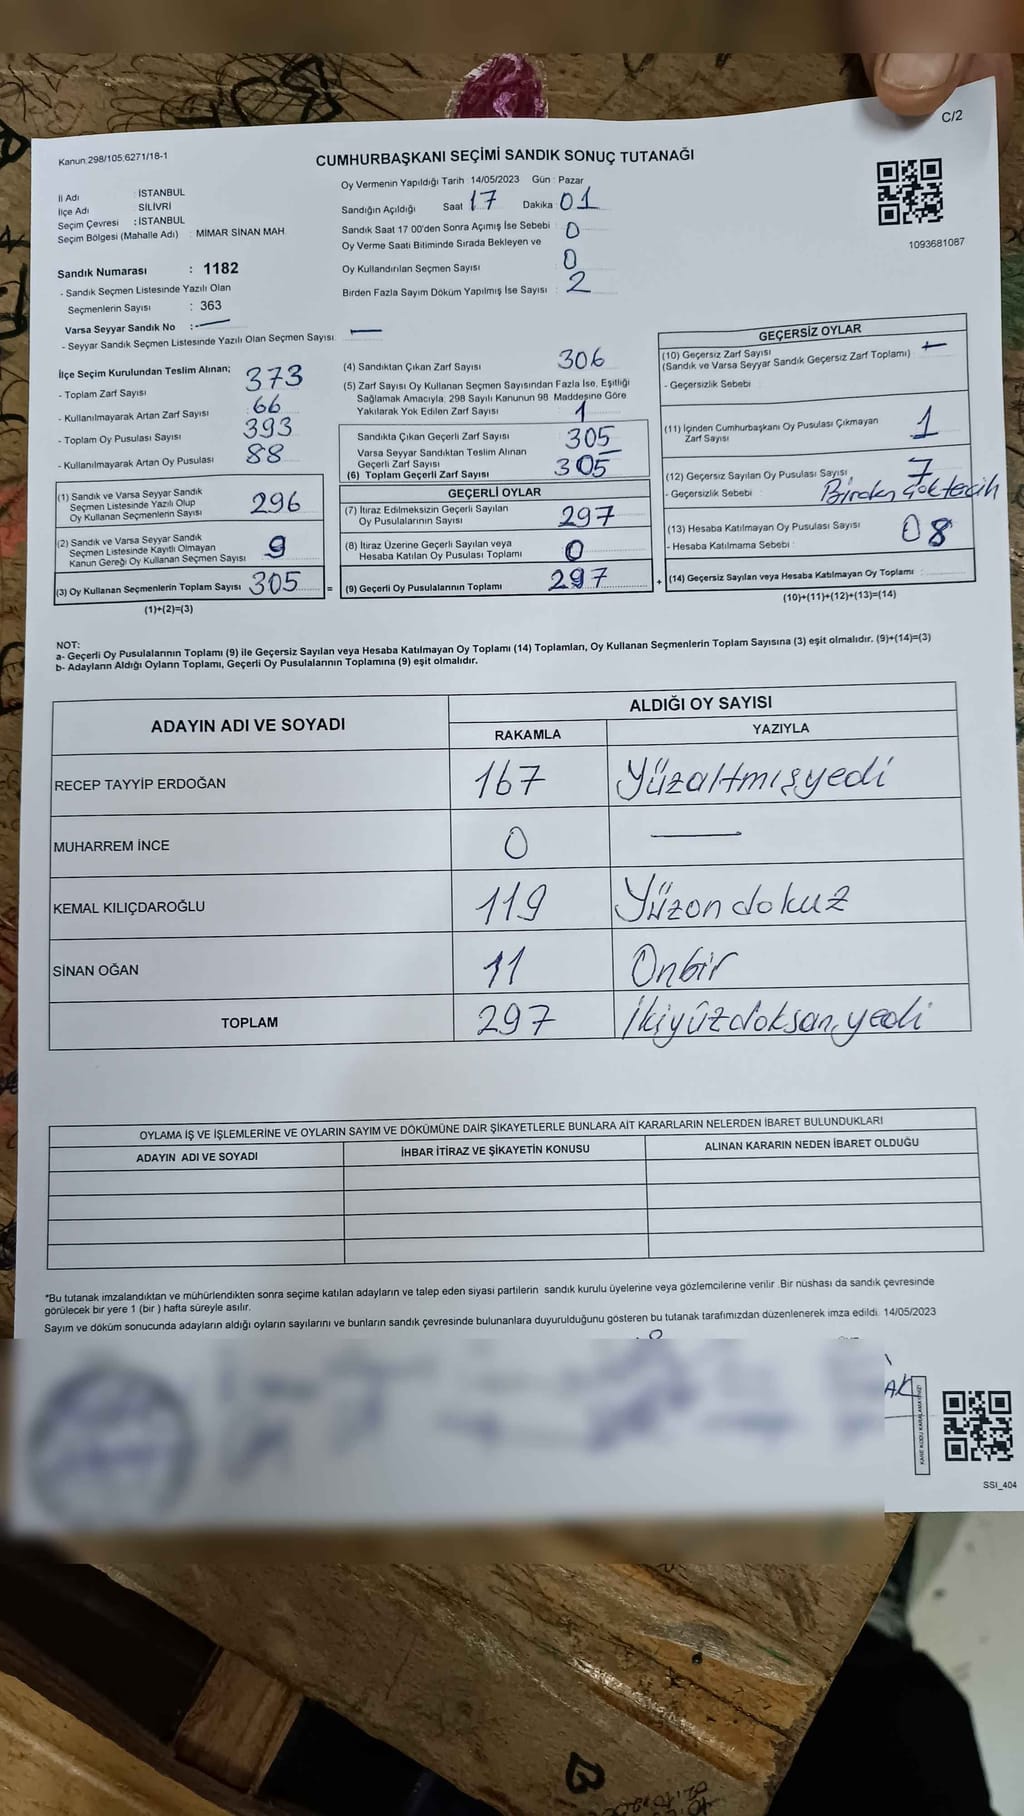 C/2
Kanun 298/105;6271/18-1
CUMHURBAŞKANI SEÇİMİ SANDIK SONUÇ TUTANAĞI
İl Adı : İSTANBUL
İlçe Adı : SİLİVRİ
Seçim Çevresi : İSTANBUL
Seçim Bölgesi (Mahalle Adı) : MİMAR SİNAN MAH
Oy Vermenin Yapıldığı Tarih : 14/05/2023 Gün : Pazar
Sandığın Açıldığı Saat 17 Dakika 01
Sandık Saat 17 00'den Sonra Açımış İse Sebebi : 0
Oy Verme Saati Bitiminde Sırada Bekleyen ve
Oy Kullandırılan Seçmen Sayısı 0
Birden Fazla Sayım Döküm Yapılmış İse Sayısı : 2
1093681087
Sandık Numarası : 1182
- Sandık Seçmen Listesinde Yazılı Olan
Seçmenlerin Sayısı : 363
Varsa Seyyar Sandık No : —
- Seyyar Sandık Seçmen Listesinde Yazılı Olan Seçmen Sayısı : —
İlçe Seçim Kurulundan Teslim Alınan;
- Toplam Zarf Sayısı 373
- Kullanılmayarak Artan Zarf Sayısı 66
- Toplam Oy Pusulası Sayısı 393
- Kullanılmayarak Artan Oy Pusulası 88
(1) Sandık ve Varsa Seyyar Sandık
Seçmen Listesinde Yazılı Olup
Oy Kullanan Seçmenlerin Sayısı 296
(2) Sandık ve Varsa Seyyar Sandık
Seçmen Listesinde Kayıtlı Olmayan
Kanun Gereği Oy Kullanan Seçmen Sayısı 9
(3) Oy Kullanan Seçmenlerin Toplam Sayısı 305 =
(1)+(2)=(3)
(4) Sandıktan Çıkan Zarf Sayısı 306
(5) Zarf Sayısı Oy Kullanan Seçmen Sayısından Fazla İse, Eşitliği
Sağlamak Amacıyla; 298 Sayılı Kanunun 98 Maddesine Göre
Yakılarak Yok Edilen Zarf Sayısı 1
Sandıkta Çıkan Geçerli Zarf Sayısı 305
Varsa Seyyar Sandıktan Teslim Alınan
Geçerli Zarf Sayısı —
(6) Toplam Geçerli Zarf Sayısı 305
GEÇERLİ OYLAR
(7) İtiraz Edilmeksizin Geçerli Sayılan
Oy Pusulalarının Sayısı 297
(8) İtiraz Üzerine Geçerli Sayılan veya
Hesaba Katılan Oy Pusulası Toplamı 0
(9) Geçerli Oy Pusulalarının Toplamı 297 +
GEÇERSİZ OYLAR
(10) Geçersiz Zarf Sayısı
(Sandık ve Varsa Seyyar Sandık Geçersiz Zarf Toplamı) —
- Geçersizlik Sebebi :
(11) İçinden Cumhurbaşkanı Oy Pusulası Çıkmayan
Zarf Sayısı 1
(12) Geçersiz Sayılan Oy Pusulası Sayısı 7
- Geçersizlik Sebebi : Birden çok tercih
(13) Hesaba Katılmayan Oy Pusulası Sayısı 08
- Hesaba Katılmama Sebebi :
(14) Geçersiz Sayılan veya Hesaba Katılmayan Oy Toplamı :
(10)+(11)+(12)+(13)=(14)
NOT:
a- Geçerli Oy Pusulalarının Toplamı (9) ile Geçersiz Sayılan veya Hesaba Katılmayan Oy Toplamı (14) Toplamları, Oy Kullanan Seçmenlerin Toplam Sayısına (3) eşit olmalıdır. (9)+(14)=(3)
b- Adayların Aldığı Oyların Toplamı, Geçerli Oy Pusulalarının Toplamına (9) eşit olmalıdır.
ADAYIN ADI VE SOYADI
ALDIĞI OY SAYISI
RAKAMLA YAZIYLA
RECEP TAYYİP ERDOĞAN 167 Yüzaltmışyedi
MUHARREM İNCE 0 —
KEMAL KILIÇDAROĞLU 119 Yüzondokuz
SİNAN OĞAN 11 Onbir
TOPLAM 297 İkiyüzdoksanyedi
OYLAMA İŞ VE İŞLEMLERİNE VE OYLARIN SAYIM VE DÖKÜMÜNE DAİR ŞİKAYETLERLE BUNLARA AİT KARARLARIN NELERDEN İBARET BULUNDUKLARI
ADAYIN ADI VE SOYADI İHBAR İTİRAZ VE ŞİKAYETİN KONUSU ALINAN KARARIN NEDEN İBARET OLDUĞU
*Bu tutanak imzalandıktan ve mühürlendikten sonra seçime katılan adayların ve talep eden siyasi partilerin sandık kurulu üyelerine veya gözlemcilerine verilir .Bir nüshası da sandık çevresinde
görülecek bir yere 1 (bir ) hafta süreyle asılır.
Sayım ve döküm sonucunda adayların aldığı oyların sayılarını ve bunların sandık çevresinde bulunanlara duyurulduğunu gösteren bu tutanak tarafımızdan düzenlenerek imza edildi. 14/05/2023
KARE KODU KARALAMAYINIZ!
SSI_404